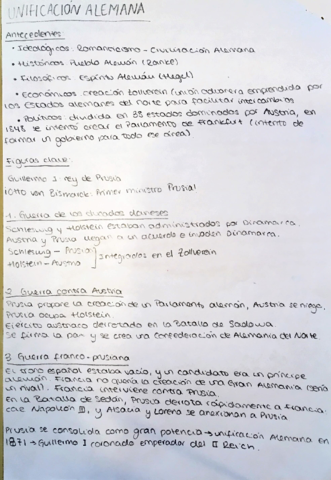 UNIFICACIÓN ALEMANA
Antecedentes:
• Ideológicos: Romanticismo - Civilización Alemana
• Históricos: Pueblo Alemán (Ranke)
• Filosóficos: Espíritu Alemán (Hegel)
• Económicos: creación Zollverein (unión aduanera emprendida por
los estados alemanes del norte para facilitar intercambios
• Políticos: dividida en 38 estados dominados por Austria, en
1848 se intentó crear el Parlamento de Frankfurt (intento de
formar un gobierno para todo ese área)
Figuras clave:
Guillermo I: rey de Prusia
Otto von Bismarck: Primer ministro Prusia
1. Guerra de los ducados daneses
Schleswig y Holstein estaban administrados por Dinamarca.
Austria y Prusia llegan a un acuerdo e invaden Dinamarca.
Schleswig - Prusia
Holstein - Austria
Integrados en el Zollverein
2. Guerra contra Austria
Prusia propone la creación de un Parlamento alemán, Austria se niega.
Prusia ocupa Holstein.
Ejército austriaco derrotado en la Batalla de Sadowa.
Se firma la paz y se crea una Confederación de Alemania del Norte
3. Guerra franco-prusiana
El trono español estaba vacío, y un candidato era un príncipe
alemán. Francia no quería la creación de una Gran Alemania (sería
un rival). Francia interviene contra Prusia.
En la Batalla de Sedán, Prusia derrota rápidamente a Francia.
Cae Napoleón III, y Alsacia y Lorena se anexionan a Prusia
Prusia se consolida como gran potencia → unificación Alemania en
1871 → Guillermo I coronado emperador del II Reich.